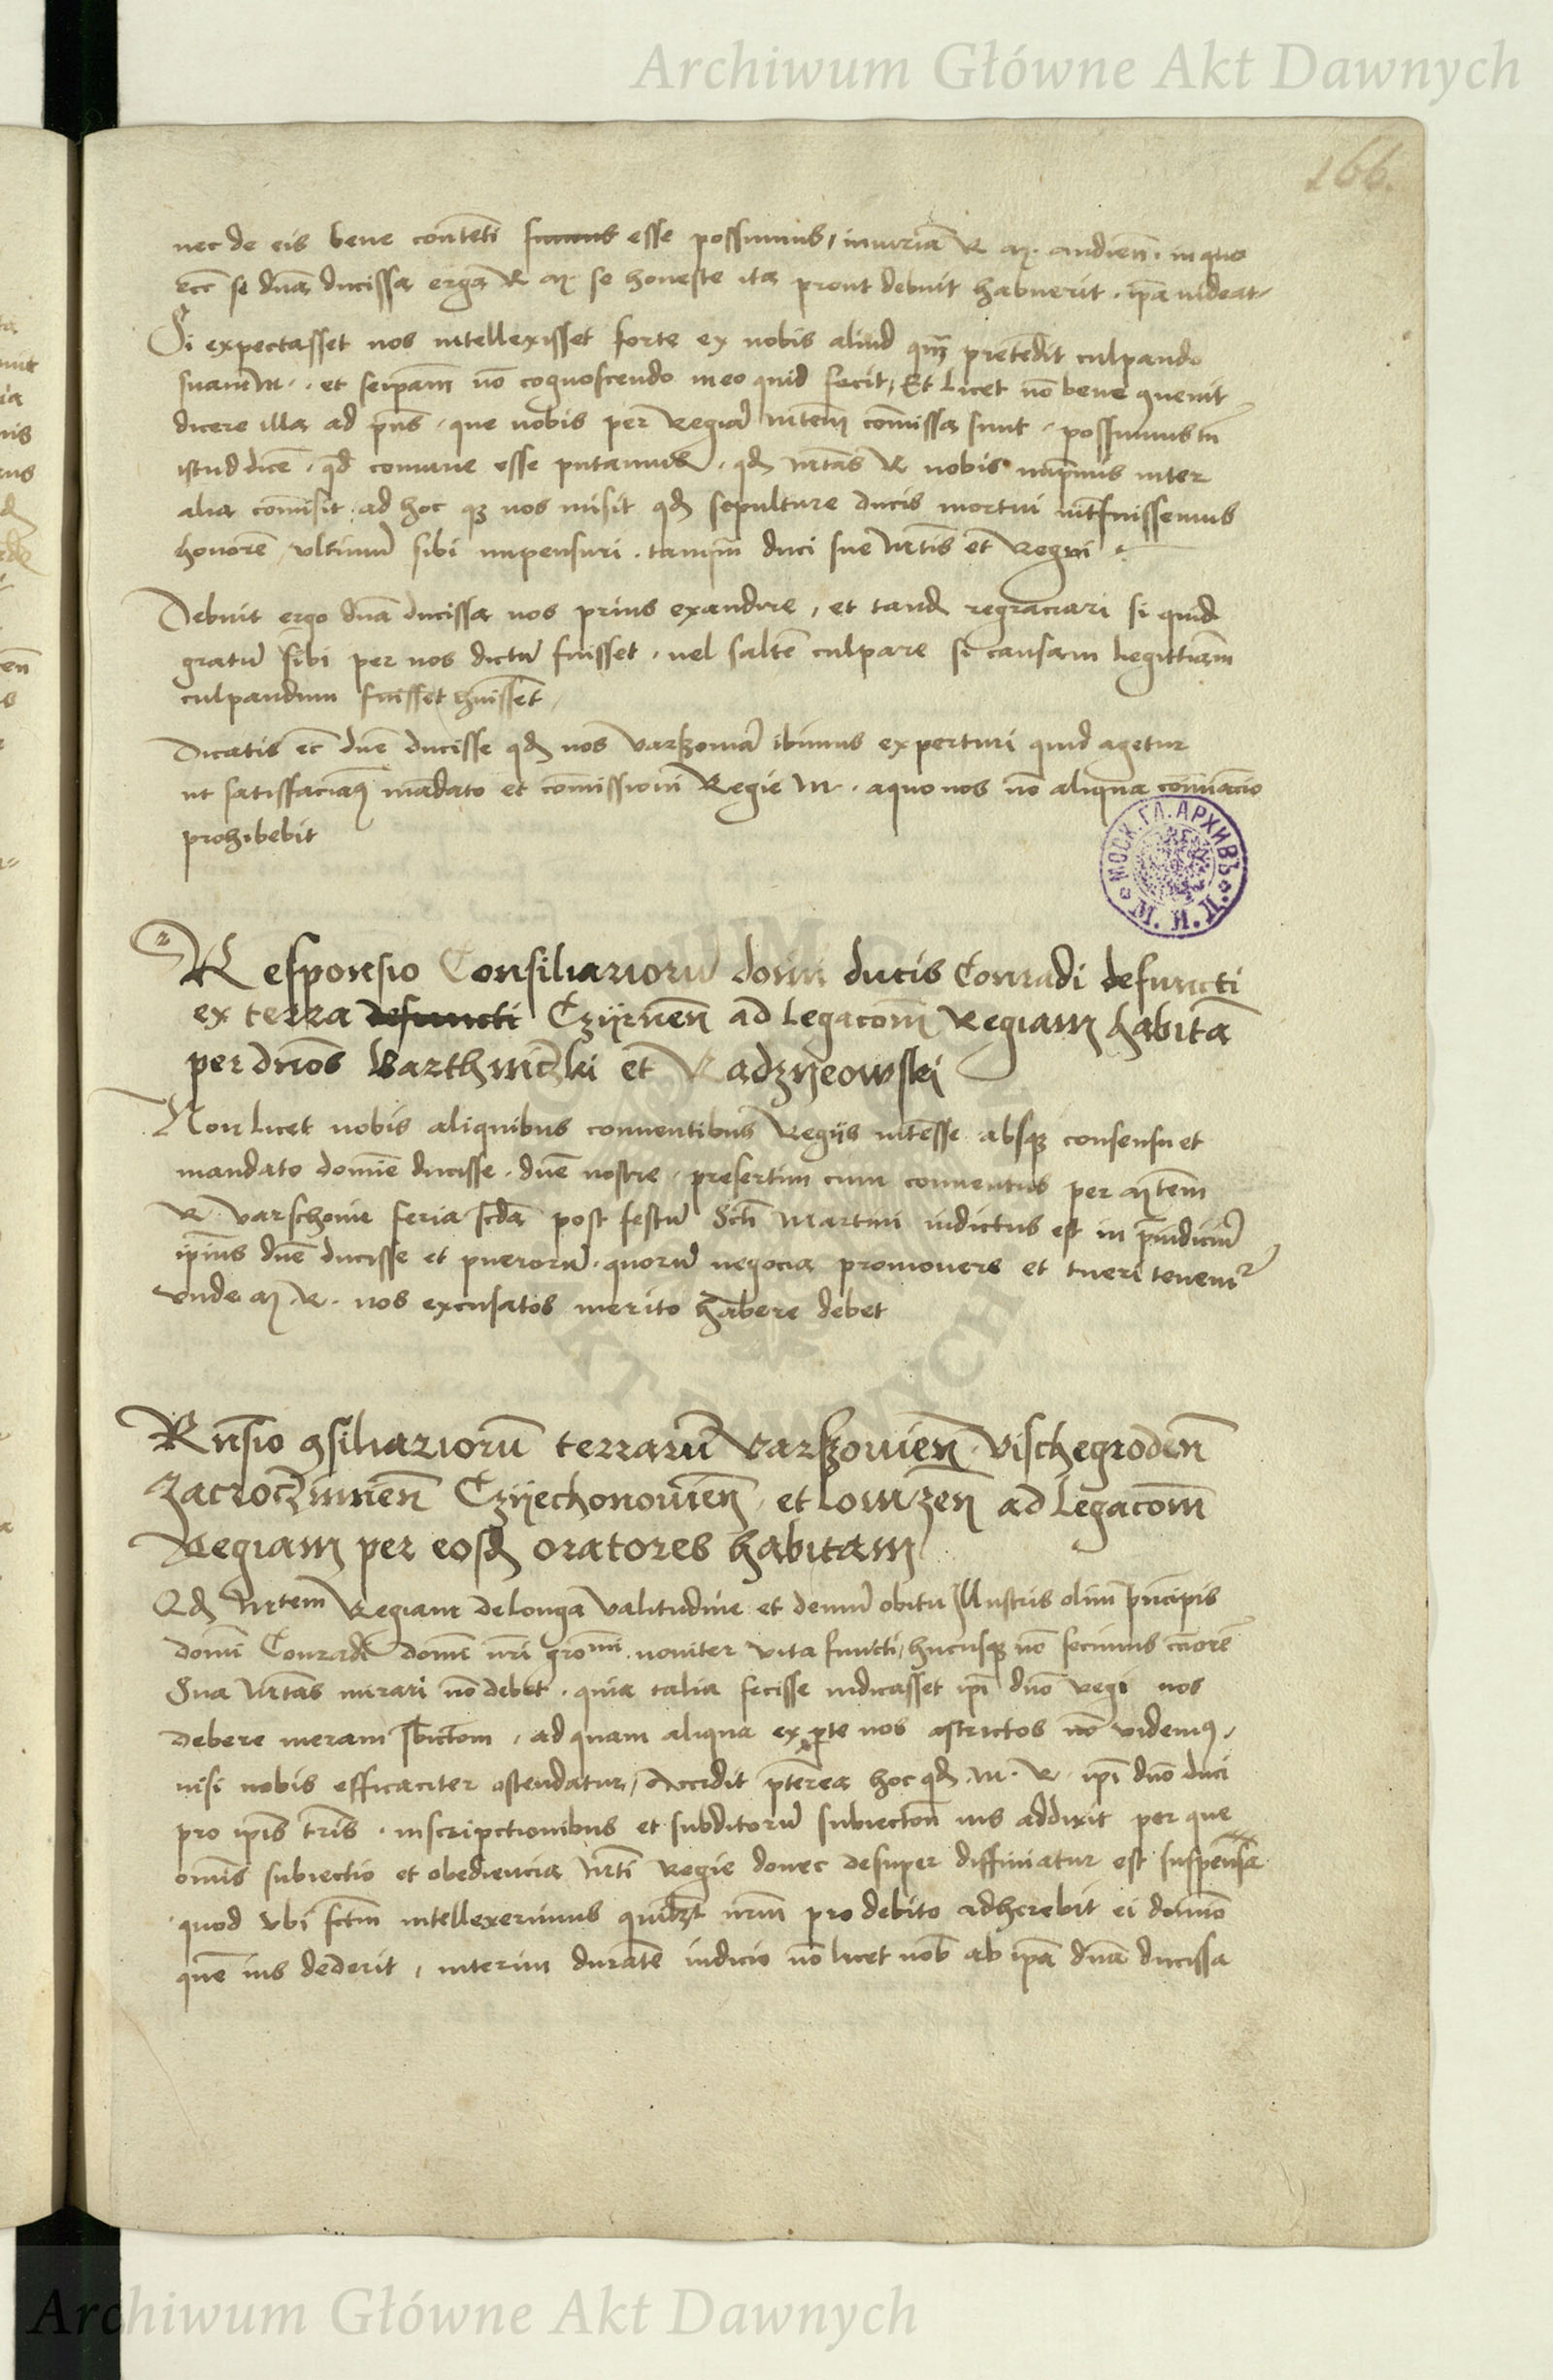 Archiwum Główne Akt Dawnych
166.
nec de eis bene contēti sumus esse possumus, iniuriā R M. audienn. in quo
ecc se dnā ducissa erga R M. se honeste ita prout debuit habuerit. ipā uideat
Si expectasset nos intellexisset forte ex nobis aliud qm̄ pretēdit culpando
suam M. et seipam nō cognoscendo in eo quid fecit, Et licet nō bene ꝯuenit
dicere illa ad p̄ns, que nobis per Regiā Mtem comissa sunt, possumus tn̄
istud dice, qd comune esse putamus, qd Mtas R nobis inp̄mis inter
alia comisit, ad hoc qꝫ nos misit qd sepulture ducis mortui int̄fuissemus
honorē ultimū sibi inpensuri, tamqm̄ duci sue Mtis et Regni
Debuit ergo dnā ducissa nos prius exaudire, et tand regraciari si quid
gratū sibi per nos dictū fuisset, uel saltē culpare si causam legittiam
culpandum fuisset huisset
Dicatis ec dnē ducisse qd nos Varszouiā ibimus experturi quid agetur
ut satisfaciamꝰ mādato et comissioni Regie M. a quo nos nō aliqua cominacio
prohibebit
МОСК. ГЛ. АРХИВЪ М. И. Д.
Responsio Consiliariorū domi ducis Conradi defuncti
ex terra defuncti Czyrnen ad legacom Regiam habitā
per dnōs Barthniczki et Radzyeowski
Non licet nobis aliquibus conuentibus Regijs interesse absqꝫ consensu et
mandato domīe ducisse, dnē nostre, presertim cum conuentus per Mtem
R Varschouie feria scdā post festū Scti Martini indictus est in p̄iudiciū
ipius dnē ducisse et puerorū, quorū negocia promouere et tueri tenem̄
vnde M. R. nos excusatos merito habere debet
Rn̄sio ꝯsiliariorū terrarū Varszouien Vischegroden
Zacrocziminen Czyechonouien et Lomzen ad legacom
Regiam per eosd oratores habitam
Qd Mtem Regiam de longa valitudine et demū obitu Illustris olim p̄ncipis
domi Conradi domi nr̄i gromi nouiter vita functi, hucusqꝫ nō fecimus cciorē
Sua Mtas mirari nō debet, quia talia fecisse indicasset ip̄i dnō regi nos
debere meram sbictom, ad quam aliqua ex pte nos astrictos nō videmꝰ,
nisi nobis efficaciter ostendatur, Accidit pterea hoc qd M. R ip̄i dnō duci
pro ip̄is tr̄is, inscripctionibus et subditorū subiectōn ius addixit per que
omis subiectio et obediencia Mti Regie donec desuper diffiniatur est suspensa
quod vbi fctm intellexerimus quilibzt nr̄m pro debito adherebit ei domīo
quē ius dederit, interim durāte iudicio nō licet nob ab ipā dnā ducissa
Archiwum Główne Akt Dawnych